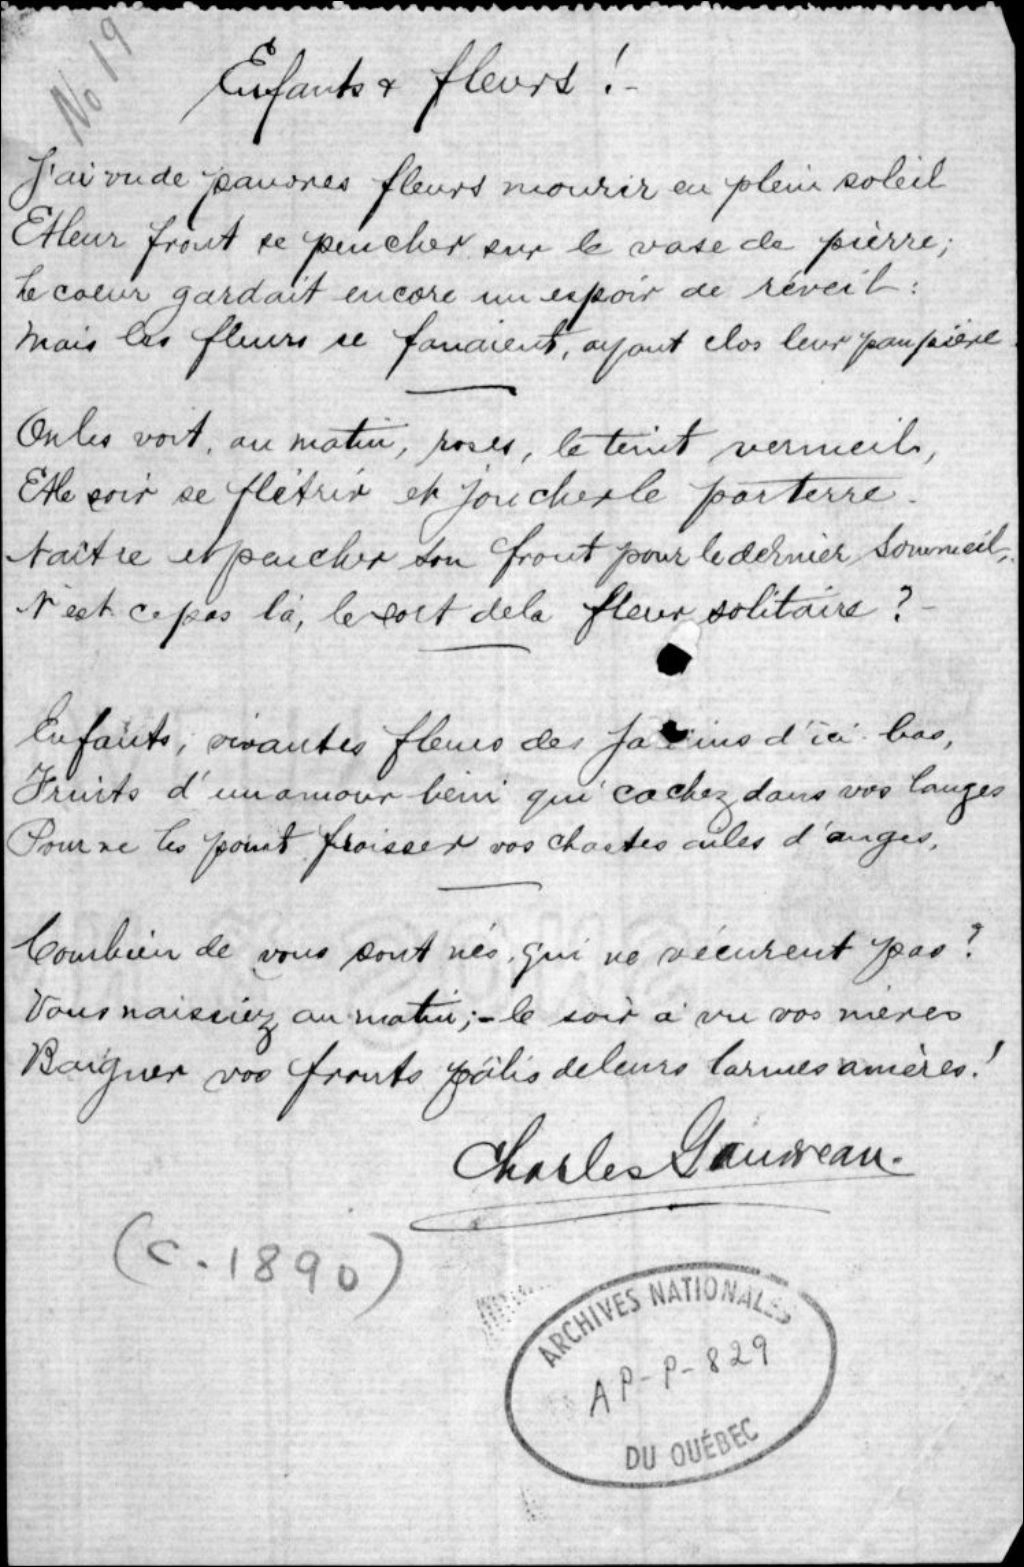 No 19
Enfants & fleurs !-
J'ai vu de pauvres fleurs mourir en plein soleil
Et leur front se pencher sur le vase de pierre;
Le coeur gardait encore un espoir de réveil:
Mais les fleurs se fanaient, ayant clos leur paupière.
On les voit, au matin, roses, le teint vermeil,
Et le soir se flétrir et joncher le parterre.
Naître et pencher son front pour le dernier sommeil,
N'est ce pas là, le sort de la fleur solitaire ?-
Enfants, vivantes fleurs des jardins d'ici-bas,
Fruits d'un amour béni qui cachez dans vos langes
Pour ne les point froisser vos chastes ailes d'anges,
Combien de vous sont nés, qui ne vécurent pas ?
Vous naissiez au matin;- le soir a vu vos mères
Baigner vos fronts pâlis de leurs larmes amères !
Charles Gauvreau.
(c. 1890)
ARCHIVES NATIONALES
AP-P-829
DU QUÉBEC